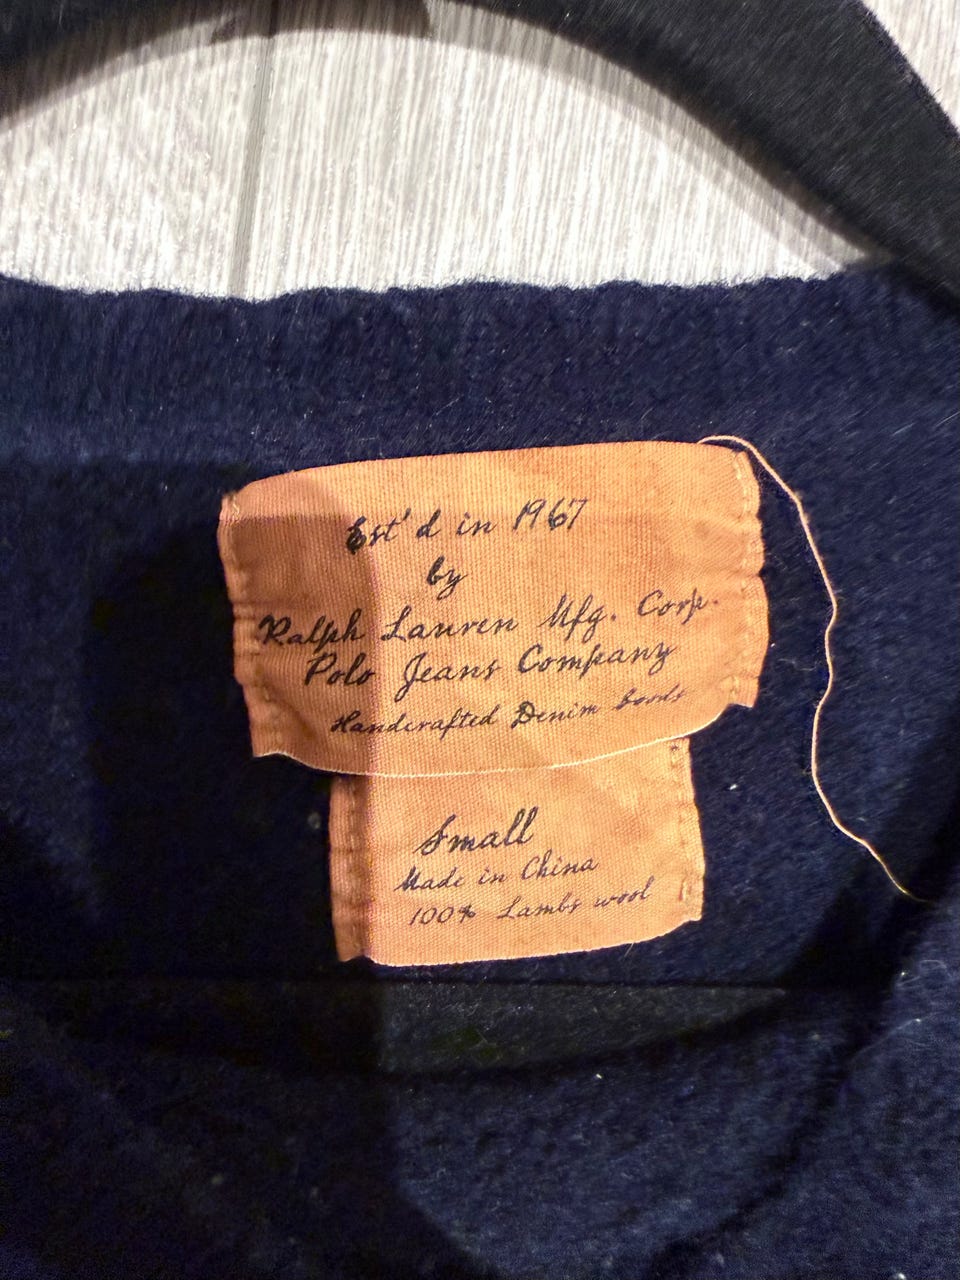 Est'd in 1967
by
Ralph Lauren Mfg. Corp.
Polo Jeans Company
Handcrafted Denim Goods
Small
Made in China
100% Lambs wool